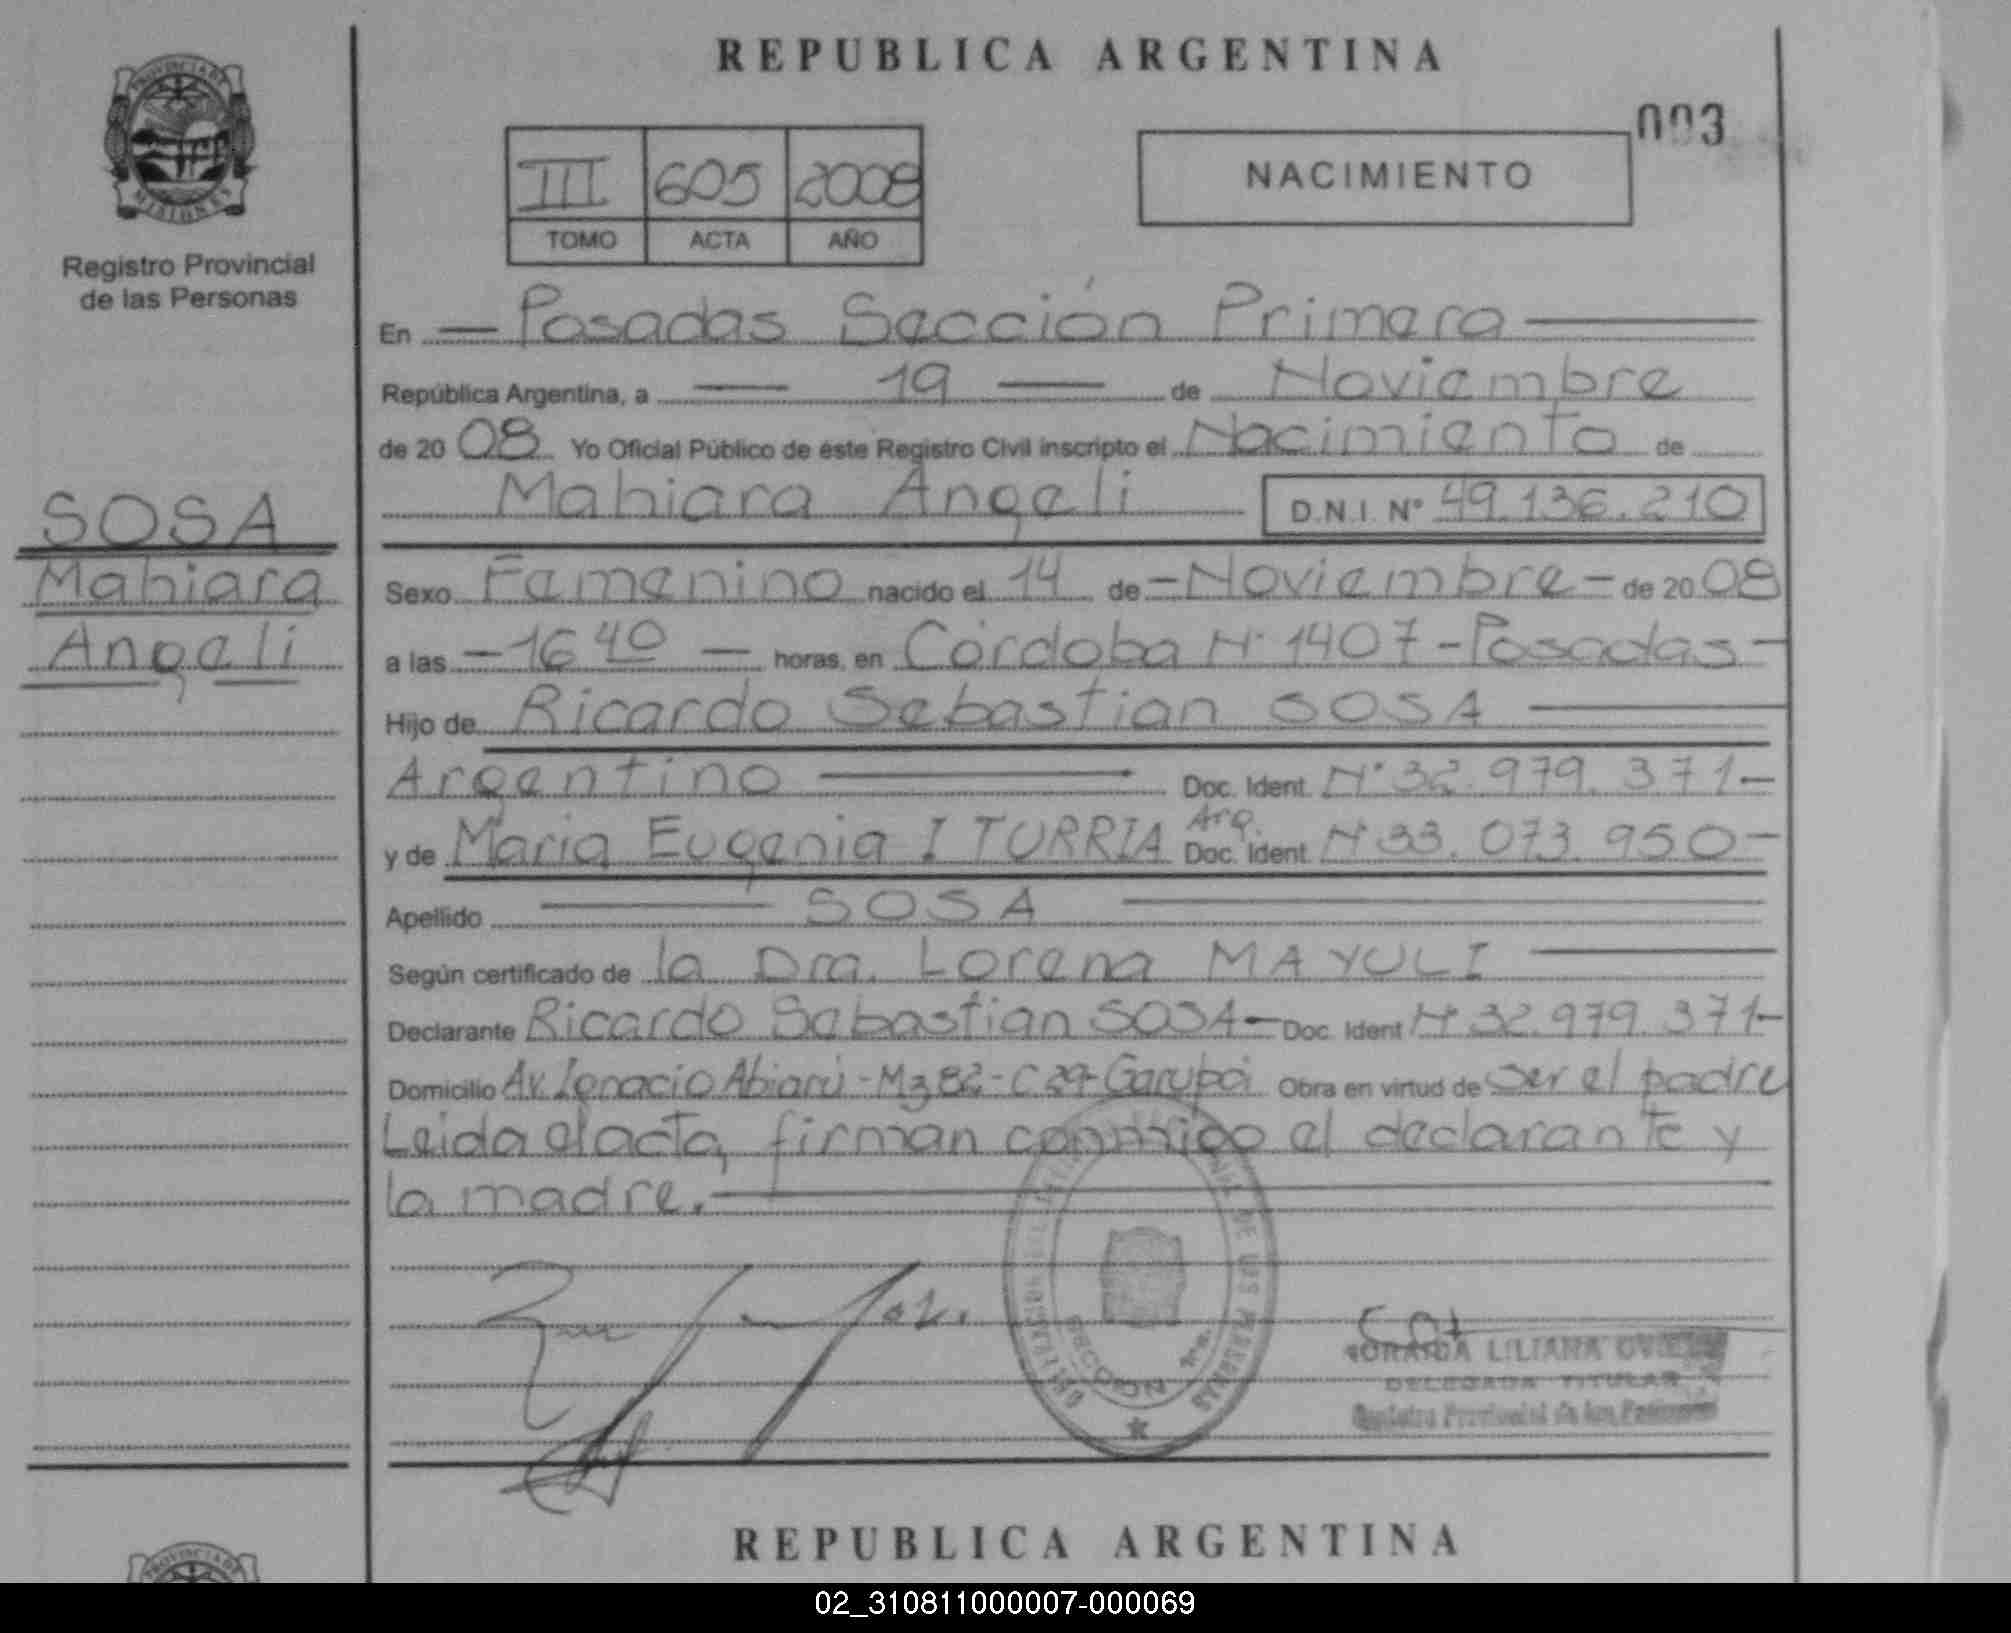 REPUBLICA ARGENTINA
003
PROVINCIA DE
MISIONES
Registro Provincial
de las Personas
III 605 2008
TOMO ACTA AÑO
NACIMIENTO
En — Posadas Sección Primera —
República Argentina, a — 19 — de Noviembre
de 2008 Yo Oficial Público de éste Registro Civil inscripto el Nacimiento de
Mahiara Angeli D.N.I. Nº 49.136.210
SOSA
Mahiara
Angeli
Sexo Femenino nacido el 14 de - Noviembre - de 2008
a las - 16 40 — horas, en Córdoba Nº 1407 - Posadas -
Hijo de Ricardo Sebastian SOSA —
Argentino — Doc. Ident. Nº 32.979.371-
y de Maria Eugenia ITURRIA Arg. Doc. Ident. Nº 33.073.950-
Apellido — SOSA —
Según certificado de la Dra. Lorena MAYULI —
Declarante Ricardo Sebastian SOSA - Doc. Ident Nº 32.979.371-
Domicilio Av. Ignacio Abiarú - Mz 82 - C 29 - Garupá Obra en virtud de ser el padre
Leida el acta, firman conmigo el declarante y
la madre. —
DE LAS PERSONAS
SECCION 1ra.
LILIANA
DELEGADA TITULAR
Registro Provincial de las Personas
REPUBLICA ARGENTINA
PROVINCIA DE
02_310811000007-000069